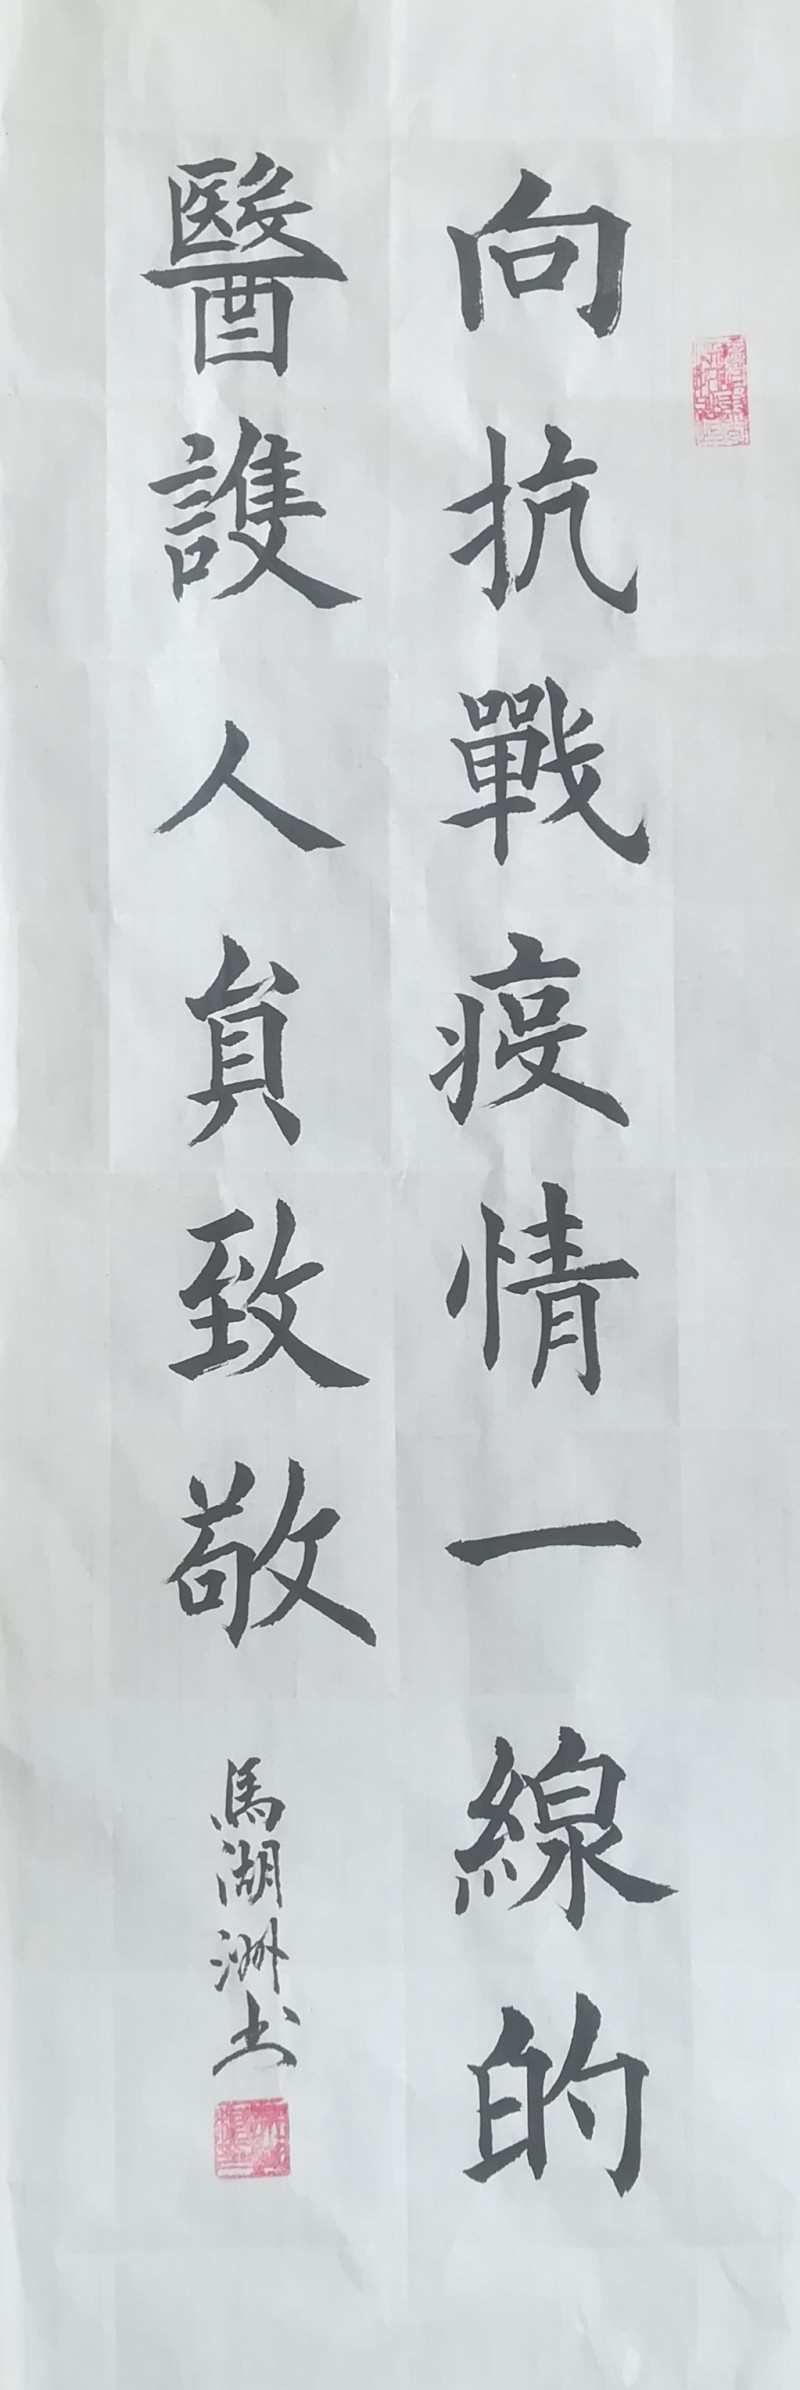 向抗戰疫情一線的
醫護人員致敬
馬湖洲书